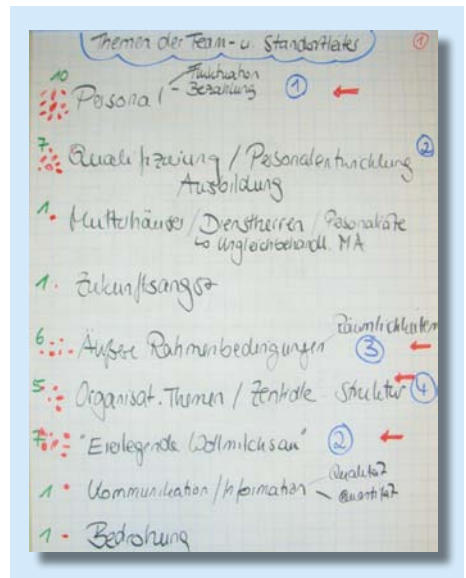 Themen der Team- u. Standortleiter ①
10 Personal - Fluktuation ①
- Bezahlung
7 Qualifizierung / Personalentwicklung ②
Ausbildung
1 Mutterhäuser / Dienstherren / Personalräte
↳ Ungleichbehandl. MA
1 Zukunftsangst
Räumlichkeiten
6 Äußere Rahmenbedingungen ③
5 Organisat. Themen / Zentrale Struktur ④
7 "Eierlegende Wollmilchsau" ②
1 Kommunikation / Information - Qualität
- Quantität
1 - Bedrohung